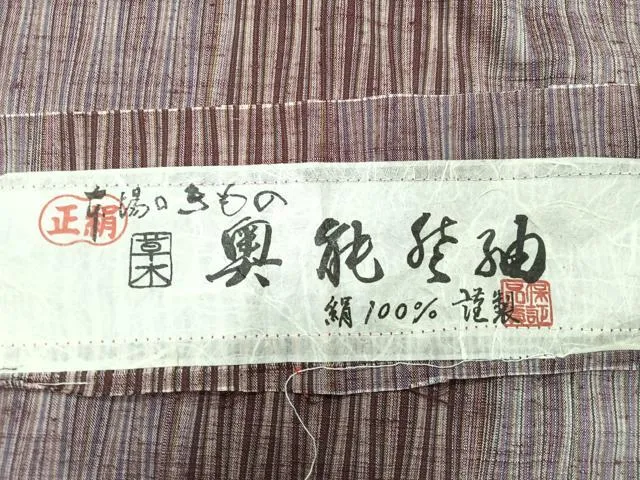 本場のきもの
正絹
草木
奥能登紬
絹100% 謹製
保証